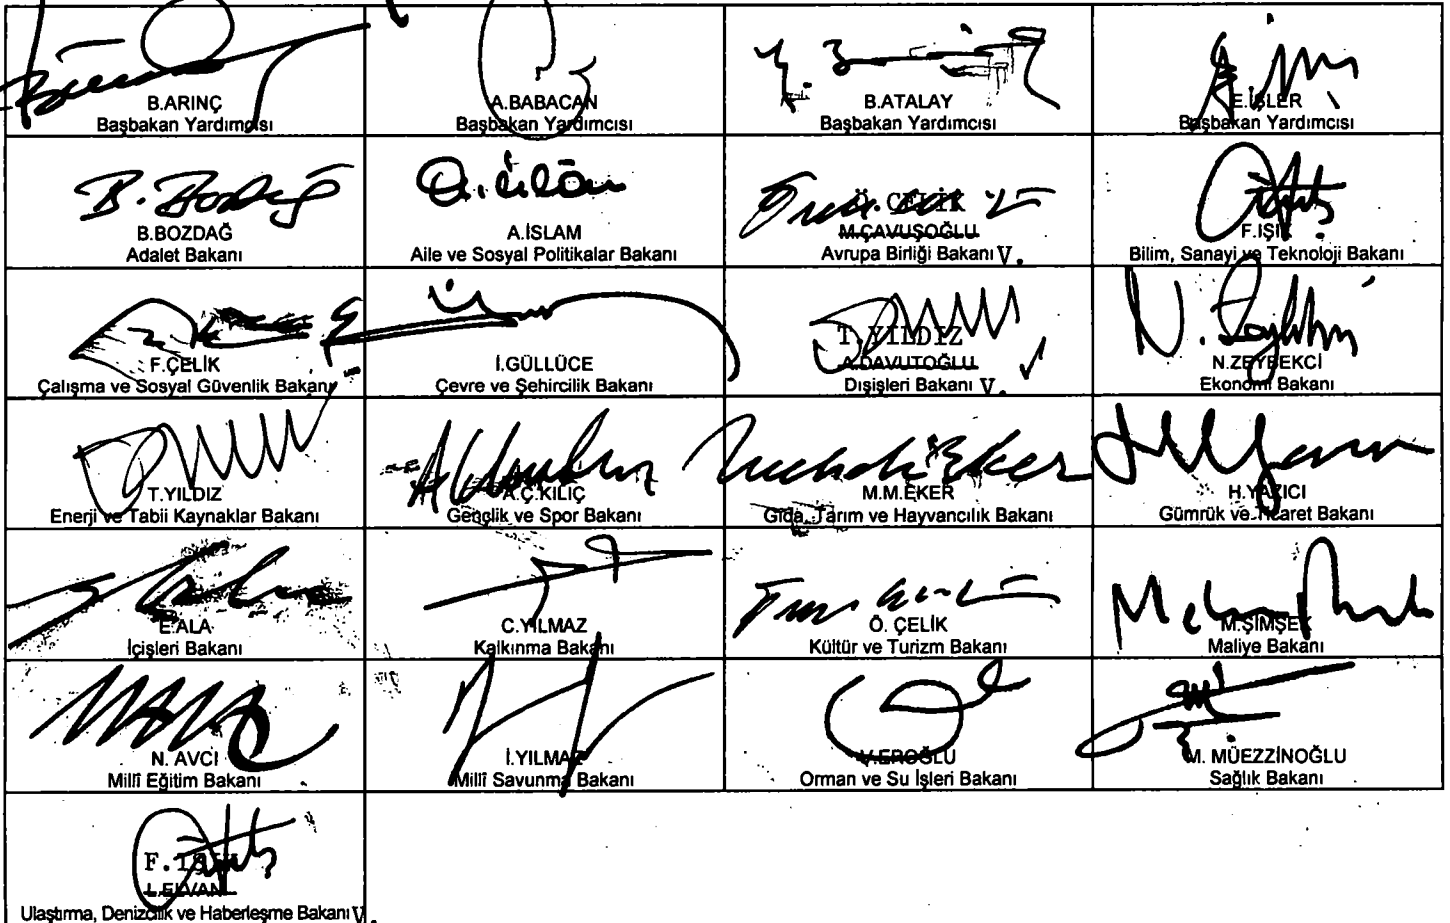 B.ARINÇ
Başbakan Yardımcısı
A.BABACAN
Başbakan Yardımcısı
B.ATALAY
Başbakan Yardımcısı
E.İŞLER
Başbakan Yardımcısı
B. Bozdağ
B.BOZDAĞ
Adalet Bakanı
A.İSLAM
Aile ve Sosyal Politikalar Bakanı
Ö. ÇELİK
M.ÇAVUŞOĞLU
Avrupa Birliği Bakanı V.
F.IŞIK
Bilim, Sanayi ve Teknoloji Bakanı
F.ÇELİK
Çalışma ve Sosyal Güvenlik Bakanı
İ.GÜLLÜCE
Çevre ve Şehircilik Bakanı
T.YILDIZ
A.DAVUTOĞLU
Dışişleri Bakanı V.
N.ZEYBEKCİ
Ekonomi Bakanı
T.YILDIZ
Enerji ve Tabii Kaynaklar Bakanı
A.Ç.KILIÇ
Gençlik ve Spor Bakanı
M.M.EKER
Gıda, Tarım ve Hayvancılık Bakanı
H.YAZICI
Gümrük ve Ticaret Bakanı
E.ALA
İçişleri Bakanı
C.YILMAZ
Kalkınma Bakanı
Ö. ÇELİK
Kültür ve Turizm Bakanı
M.ŞİMŞEK
Maliye Bakanı
N. AVCI
Millî Eğitim Bakanı
İ.YILMAZ
Millî Savunma Bakanı
V.EROĞLU
Orman ve Su İşleri Bakanı
M. MÜEZZİNOĞLU
Sağlık Bakanı
F.IŞIK
L.ELVAN
Ulaştırma, Denizcilik ve Haberleşme Bakanı V.